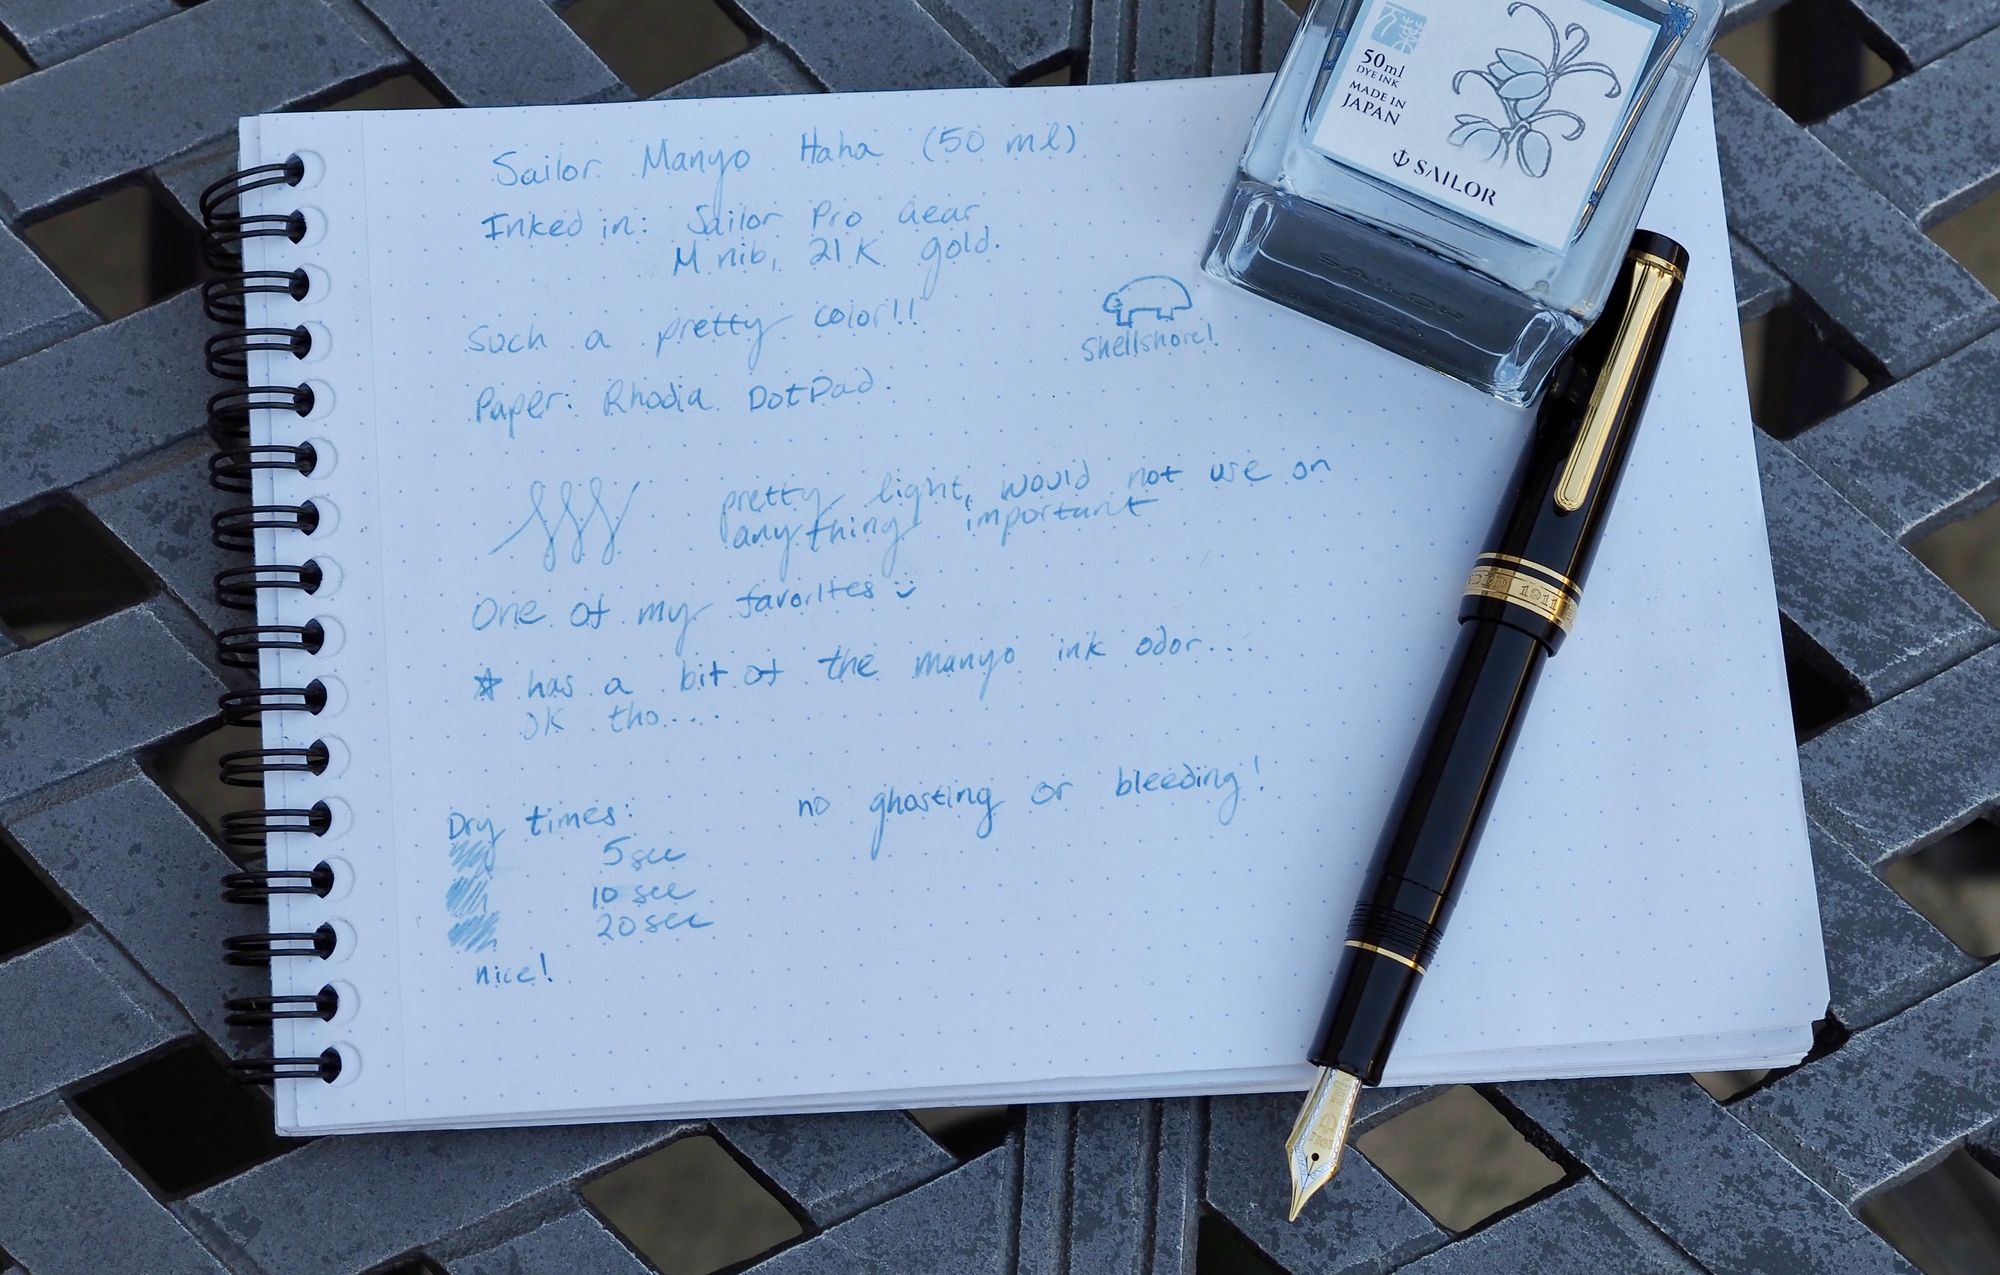 Sailor Manyo Haha (50 ml)
Inked in: Sailor Pro Gear
M nib, 21K gold.
Such a pretty color!!
shellshore!
Paper: Rhodia DotPad.
pretty light, would not use on
anything important
One of my favorites
* has a bit of the manyo ink odor...
OK tho....
Dry times:
no ghosting or bleeding!
5 sec
10 sec
20 sec
nice!
50ml
DYE INK
MADE IN
JAPAN
SAILOR
1911